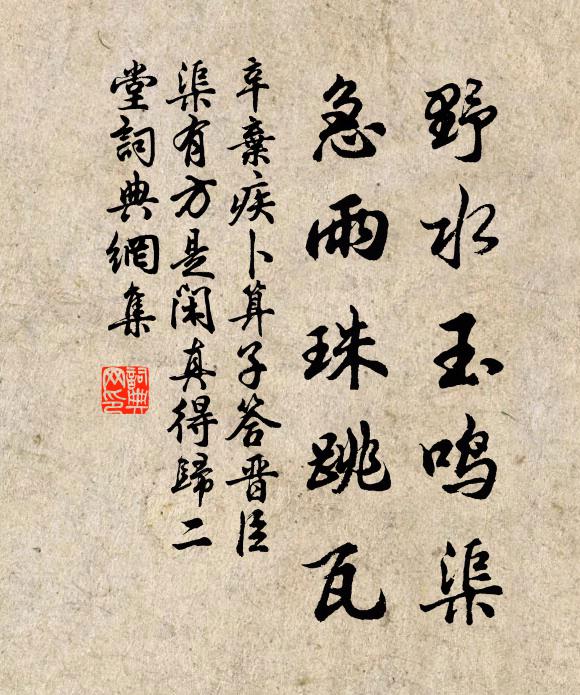 野水玉鸣渠
急雨珠跳瓦
辛棄疾卜算子答晋臣
渠有方是闲真得歸二
堂詞典網集
詞典网印